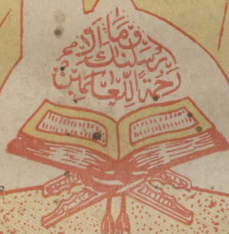 وما ار
سلنك الا
رحمة للعالمين